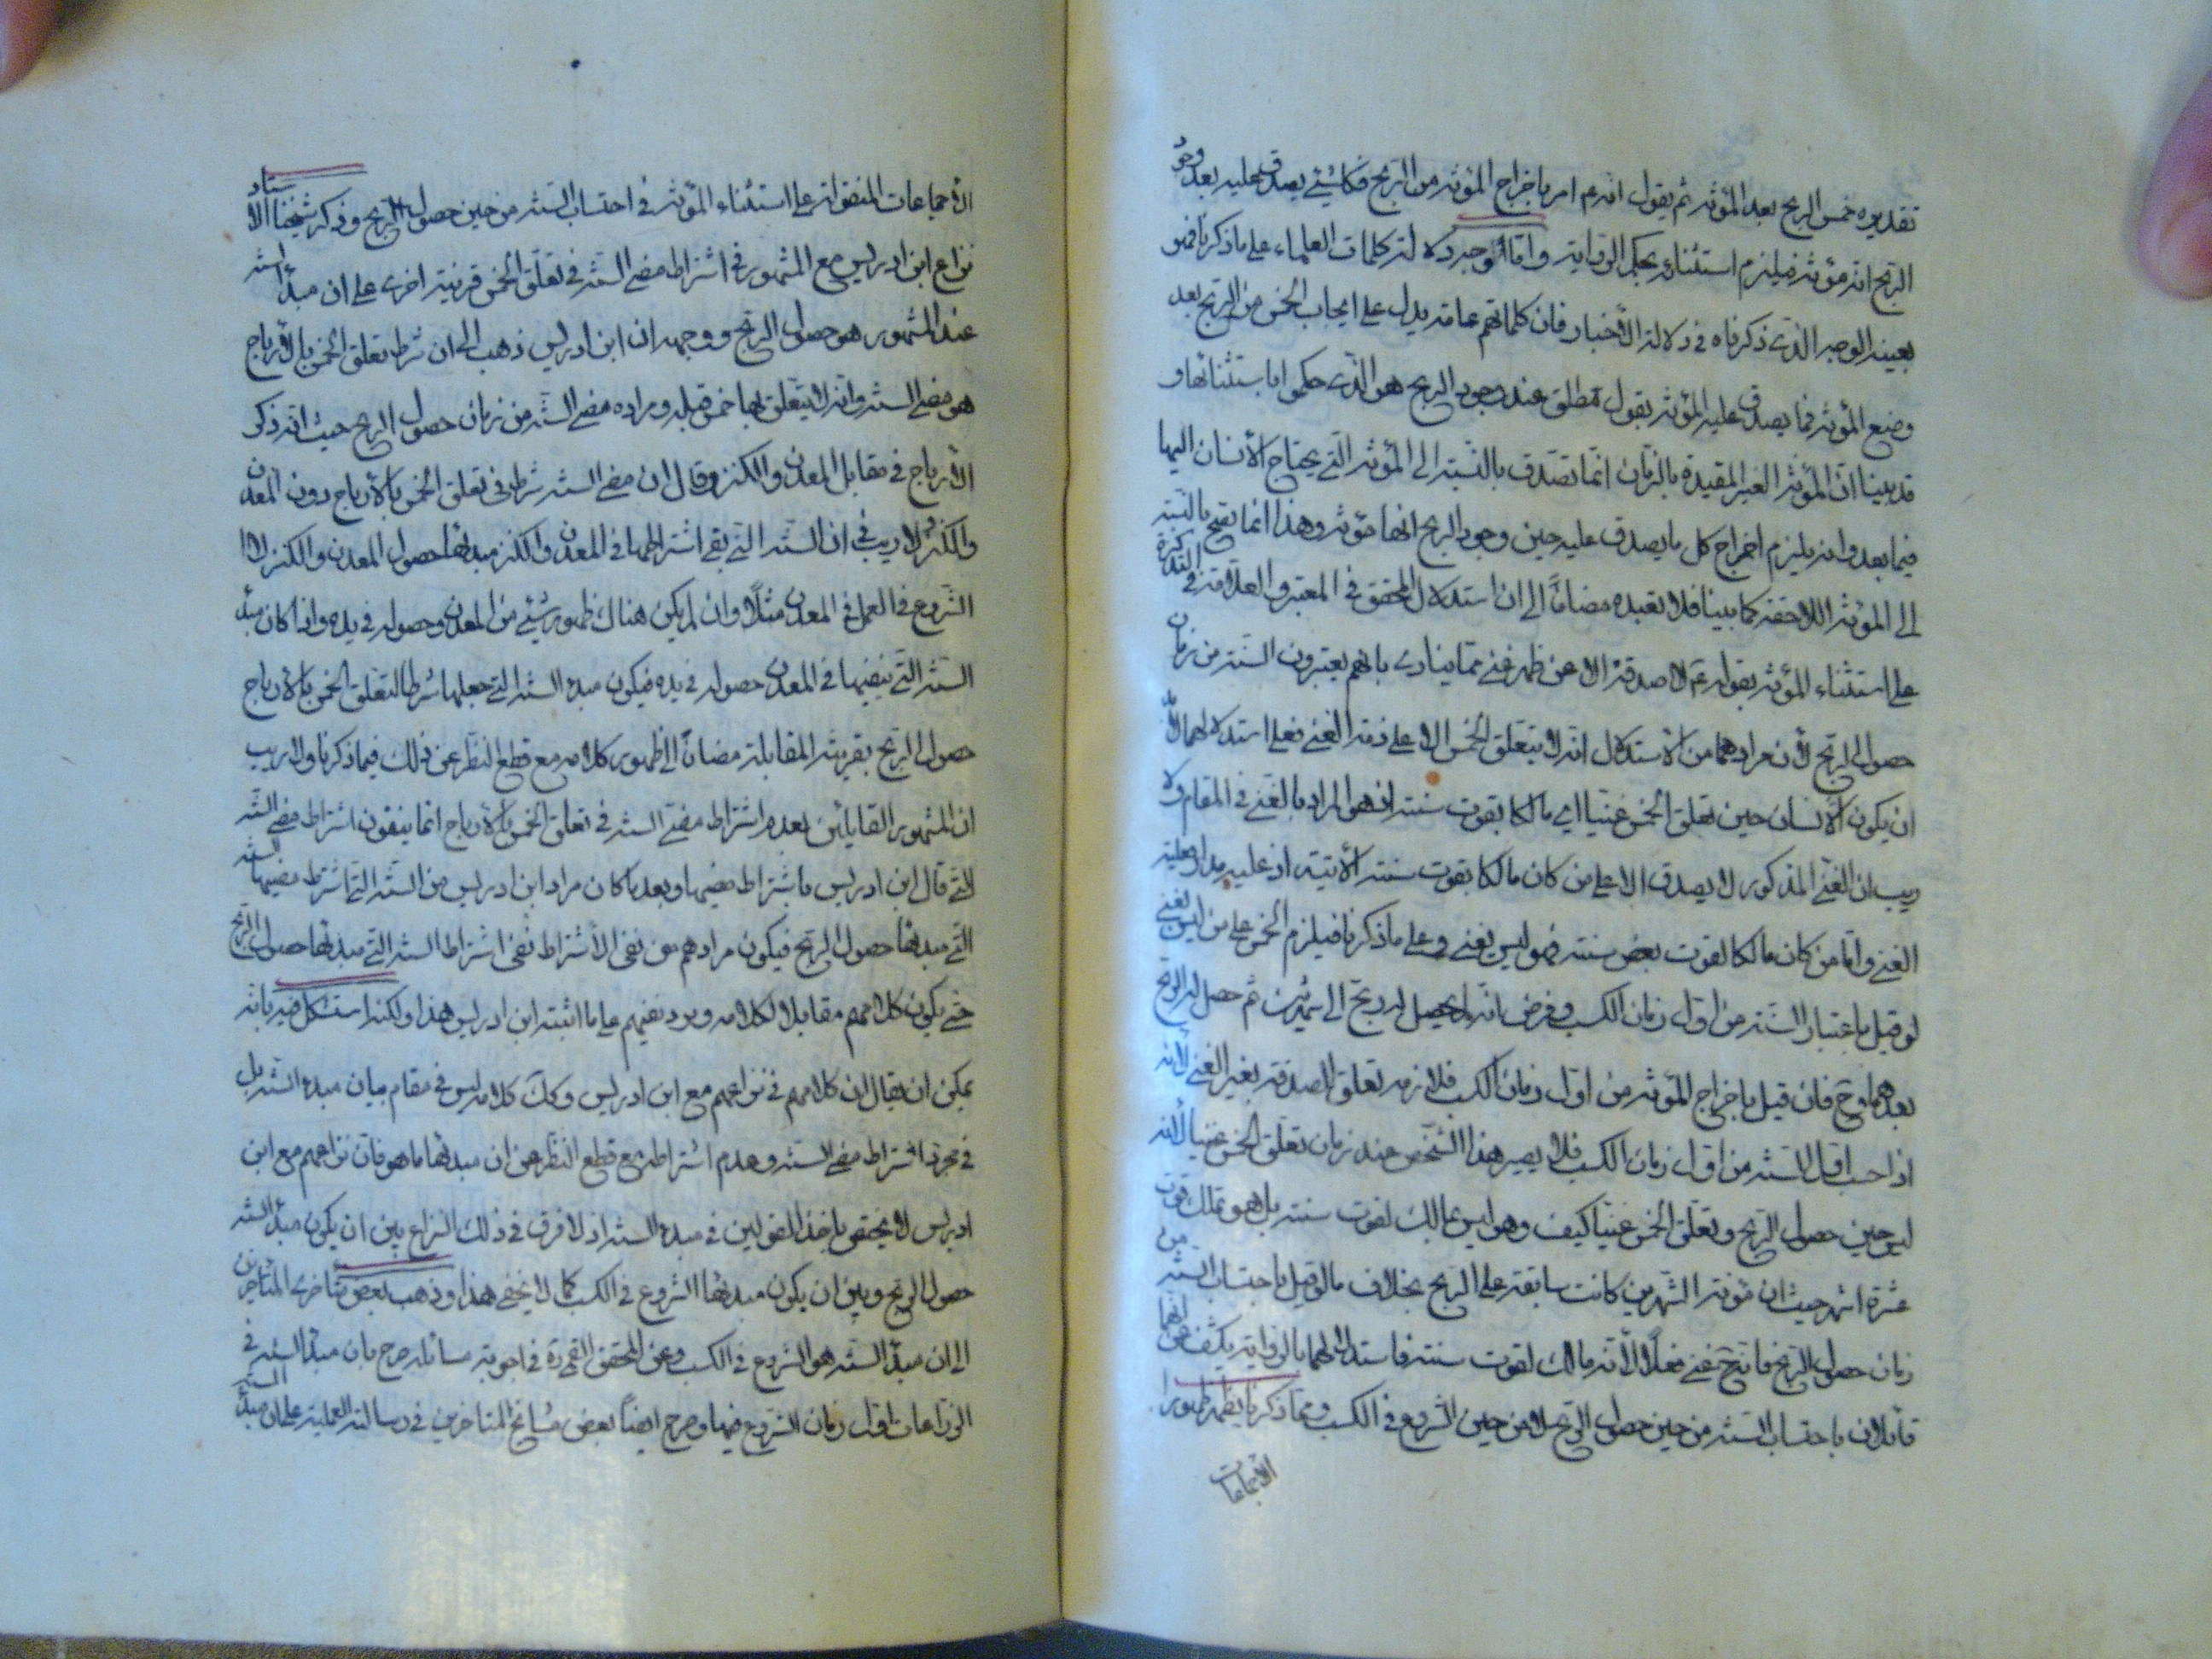 تقديره خمس الربح بعد المؤنة ثم يقول انه م امر باخراج المؤنة من الربح فكل شئ يصدق عليه بعد وجود
الربح انه مؤنة فيلزم استثناؤه بحكم الرواية واما وجه دلالة كلمات العلماء على ما ذكرنا فهو
بعينه الوجه الذي ذكرناه في دلالة الأخبار فان كلماتهم عامة يدل على ايجاب الخمس من الربح بعد
وضع المؤنة فما يصدق عليه المؤنة بقول مطلق عند وجود الربح هو الذي حكموا باستثنائها و
قد بينا ان المؤنة الغير المقيدة بالزمان انما تصدق بالنسبة الى المؤنة التي يحتاج الأنسان اليها
فيما بعد وانه يلزم اخراج كل ما يصدق عليه حين وجود الربح انها مؤنة وهذا انما يصح بالنسبة
الى المؤنة اللاحقة كما بينا فلا نعيده مضافاً الى ان استدلال المحقق في المعتبر والعلامة في التذكرة
على استثناء المؤنة بقوله م لا صدقة الا عن ظهر غنى مما ينادي بانهم يعتبرون السنة من زمان
حصول الربح لأن مرادهما من الأستدلال انه لا يتعلق الخمس الا على ذمة الغني فعلى استدلالهما لابد
ان يكون الأنسان حين تعلق الخمس غنيا اي مالكا بقوت سنته اذ هو المراد بالغني في المقام ولا
ريب ان الغني المذكور لا يصدق الا على من كان مالكا بقوت سنته الأتية اذ عليه مدار
الغنى واما من كان مالكا لقوت بعض سنته فهو ليس بغني وعلى ما ذكرنا فيلزم الخمس على من ليس بغني
لو قيل باعتبار السنة من اول زمان الكسب وفرض انه لم يحصل له ربح الى شهرين ثم حصل له الربح
بعدهما وح فان قيل باخراج المؤنة من اول زمان الكسب فلازمه تعلق الصدقة بغير الغني لأنه
اذا حسب اول السنة من اول زمان الكسب فلا يصير هذا الشخص عند زمان تعلق الخمس غنيا لأنه
ليس حين حصول الربح وتعلق الخمس غنيا كيف وهو ليس بمالك لقوت سنته بل هو تملك قوت
عشرة اشهر حيث ان مؤنة الشهرين كانت سابقة على الربح بخلاف ما لو قيل باحتساب السنة من
زمان حصول الربح فانه ح غني فعلاً لأنه مالك لقوت سنته فاستدلالهما بالرواية يكشف عن انهما
قائلان باحتساب السنة من حين حصول الربح لا من حين الشروع في الكسب ومما ذكرنا يظهر ظهور
الأجماعات
الأجماعات المنقولة على استثناء المؤنة في احتساب السنة من حين حصول الربح وذكر شيخنا الأستاد
نزاع ابن ادريس مع المشهور في اشتراط مضي السنة في تعلق الخمس قرينة اخرى على ان مبدأ السنة
عند المشهور هو حصول الربح ووجهه ان ابن ادريس ذهب الى ان شرط تعلق الخمس بالأرباح
هو مضي السنة وانه لا يتعلق بها خمس قبله ومراده مضي السنة من زمان حصول الربح حيث انه ذكر
الأرباح في مقابل المعدن والكنز وقال ان مضي السنة شرط في تعلق الخمس بالأرباح دون المعدن
والكنز ولا ريب في ان السنة التي بقي اشتراطها في المعدن والكنز مبدئها حصول المعدن والكنز لا
الشروع في العمل في المعدن مثلاً وان لم يكن هناك ظهور شئ من المعدن وحصوله في يده واذا كان مبدأ
السنة التي ينفيها في المعدن حصوله في يده فيكون مبدء السنة التي جعلها شرطا لتعلق الخمس بالأرباح
حصول الربح بقرينة المقابلة مضافاً الى ظهور كلامه مع قطع النظر عن ذلك فيما ذكرنا ولا ريب
ان المشهور القايلين بعدم اشتراط مضي السنة في تعلق الخمس بالأرباح انما ينفون اشتراط مضي السنة
التي قال ابن ادريس باشتراط مضيها وبعد ما كان مراد ابن ادريس من السنة التي اشترط مضيها السنة
التي مبدئها حصول الربح فيكون مرادهم من نفي الأشتراط نفي اشتراط السنة التي مبدئها حصول الربح
حتى يكون كلامهم مقابلا لكلامه ويرد نفيهم على ما اثبته ابن ادريس هذا ولكنه استشكل فيه بانه
يمكن ان يقال ان كلامهم في نزاعهم مع ابن ادريس وكك كلامه ليس في مقام بيان مبدء السنة بل
في مجرد اشتراط مضي السنة وعدم اشتراطه مع قطع النظر عن ان مبدئها ما هو فان نزاعهم مع ابن
ادريس لا يختص باحد القولين في مبدء السنة اذ لا فرق في ذلك النزاع بين ان يكون مبدأ السنة
حصول الربح وبين ان يكون مبدئها الشروع في الكسب كما لا يخفى هذا وذهب بعض متاخري المتاخرين
الى ان مبدأ السنة هو الشروع في الكسب وعن المحقق القمي ره في اجوبة مسائله صرح بان مبدأ السنة في
الزراعات اول زمان الشروع فيها وصرح ايضاً بعض مشايخ المتاخرين في رسالته العملية على ان مبدأ السنة